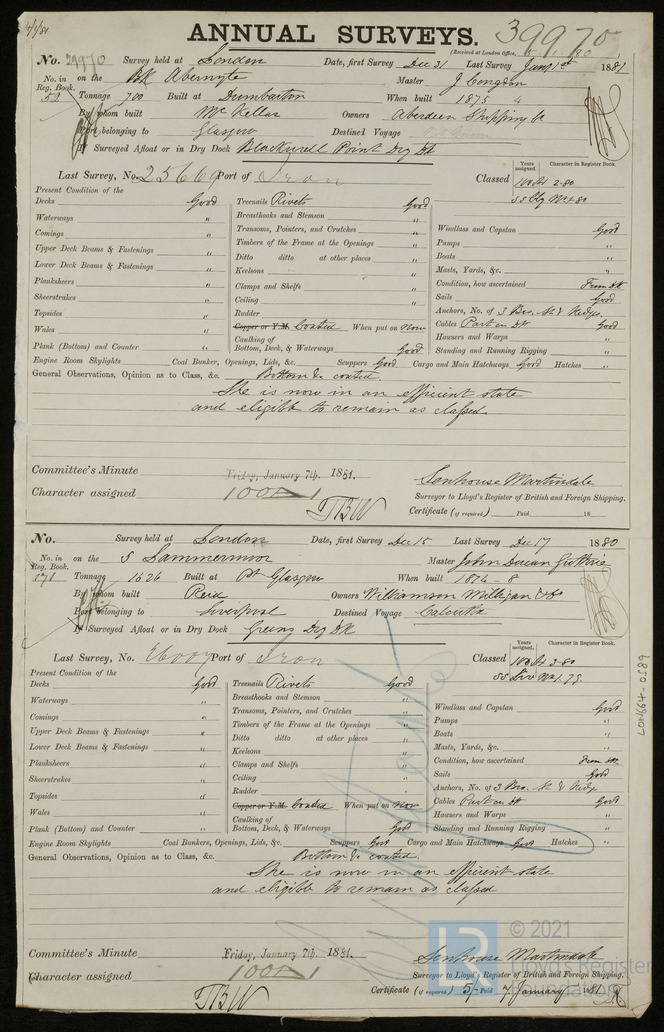 4/1/81
ANNUAL SURVEYS. 39970
(Received at London Office,
No. 39970 Survey held at London Date, first Survey Dec 31 Last Survey Jany 1st 1881
No. in Reg. Book. on the Bk Abernyte Master J
52 Tonnage 700 Built at Dumbarton When built 1875
By whom built McKellar Owners Aberdeen Shipping Co
Port belonging to Glasgow Destined Voyage
If Surveyed Afloat or in Dry Dock Blackwall Point Dry Dk
Years assigned. Character in Register Book.
Last Survey, No. 25669 Port of Iron Classed 100 A1 2.80
Present Condition of the
Decks Good Treenails Rivets Good
Waterways " Breasthooks and Stemson " Windlass and Capstan Good
Comings " Transoms, Pointers, and Crutches " Pumps "
Upper Deck Beams & Fastenings " Timbers of the Frame at the Openings " Boats "
Lower Deck Beams & Fastenings " Ditto ditto at other places " Masts, Yards, &c. "
Planksheers " Keelsons " Condition, how ascertained From Dk
Sheerstrakes " Clamps and Shelfs " Sails Good
Topsides " Ceiling " Anchors, No. of 3 Bro. St & Kedge
Wales " Rudder " Cables Part on Dk Good
Copper or Y.M. Coated When put on Now Hawsers and Warps "
Plank (Bottom) and Counter " Caulking of Bottom, Deck, & Waterways Good Standing and Running Rigging "
Engine Room Skylights Coal Bunker, Openings, Lids, &c. Scuppers Good Cargo and Main Hatchways Good Hatches "
General Observations, Opinion as to Class, &c. Bottom &c coated.
She is now in an efficient state
and eligible to remain as classed
Committee's Minute Friday, January 7th, 1881.
Character assigned 100A1
TBW
Senhouse Martindale
Surveyor to Lloyd's Register of British and Foreign Shipping.
Certificate (if required) Paid 18
No. Survey held at London Date, first Survey Dec 15 Last Survey Dec 17 1880
No. in Reg. Book. on the S Lammermoor Master John Guthrie
171 Tonnage 1626 Built at Pt Glasgow When built 1874-8
By whom built Reid Owners Williamson Milligan & Co
Port belonging to Liverpool Destined Voyage Calcutta
If Surveyed Afloat or in Dry Dock Greens Dry Dk
Years assigned. Character in Register Book.
Last Survey, No. Port of Iron Classed 100 A1 2.80
Present Condition of the
Decks Good Treenails Rivets Good
Waterways " Breasthooks and Stemson " Windlass and Capstan Good
Comings " Transoms, Pointers, and Crutches " Pumps "
Upper Deck Beams & Fastenings " Timbers of the Frame at the Openings " Boats "
Lower Deck Beams & Fastenings " Ditto ditto at other places " Masts, Yards, &c. "
Planksheers " Keelsons " Condition, how ascertained From Dk
Sheerstrakes " Clamps and Shelfs " Sails Good
Topsides " Ceiling " Anchors, No. of 3 Bro. St & Kedge
Wales " Rudder " Cables Part on Dk Good
Copper or Y.M. Coated When put on Now Hawsers and Warps "
Plank (Bottom) and Counter " Caulking of Bottom, Deck, & Waterways Good Standing and Running Rigging "
Engine Room Skylights Coal Bunkers, Openings, Lids, &c. Scuppers Good Cargo and Main Hatchways Good Hatches "
General Observations, Opinion as to Class, &c. Bottom &c coated.
She is now in an efficient state
and eligible to remain as classed
Committee's Minute Friday, January 7th, 1881.
Character assigned 100A1
TBW
Senhouse Martindale
Surveyor to Lloyd's Register of British and Foreign Shipping.
Certificate (if required) 5/- Paid 7 January 1881
LON664-0589
© 2021
LR
Lloyd's Register
Foundation